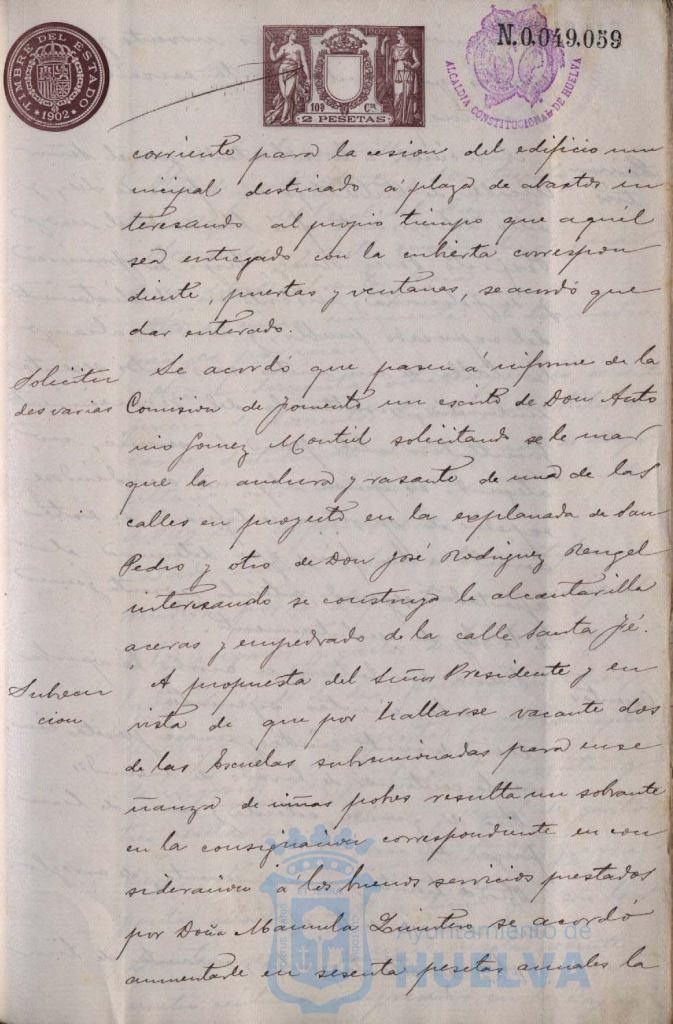 TIMBRE DEL ESTADO
*1902*
AÑO 1902
10ª Cª
2 PESETAS
N.0.049.059
ALCALDIA CONSTITUCIONAL DE HUELVA
corriente para la cesion del edificio mu
nicipal destinado á plaza de abastos in
teresando al propio tiempo que aquél
sea entregado con la cubierta correspon
diente, puertas y ventanas, se acordó que
dar enterado.
Solicitu
des varias
Se acordó que pasen á informe de la
Comision de Fomento un escrito de Don Anto
nio Gomez Montiel solicitando se le mar
que la anchura y rasante de una de las
calles en proyecto en la explanada de San
Pedro y otro de Don José Rodriguez Rengel
interesando se construya la alcantarilla
aceras y empedrado de la calle Santa Fé.
Subven
cion
A propuesta del Señor Presidente y en
vista de que por hallarse vacante dos
de las Escuelas subvencionadas para ense
ñanza de niñas pobres resulta un sobrante
en la consignacion correspondiente en con
sideracion á los buenos servicios prestados
por Doña Manuela Quintero se acordó
aumentarle en sesenta pesetas anuales la
Ayuntamiento de
HUELVA